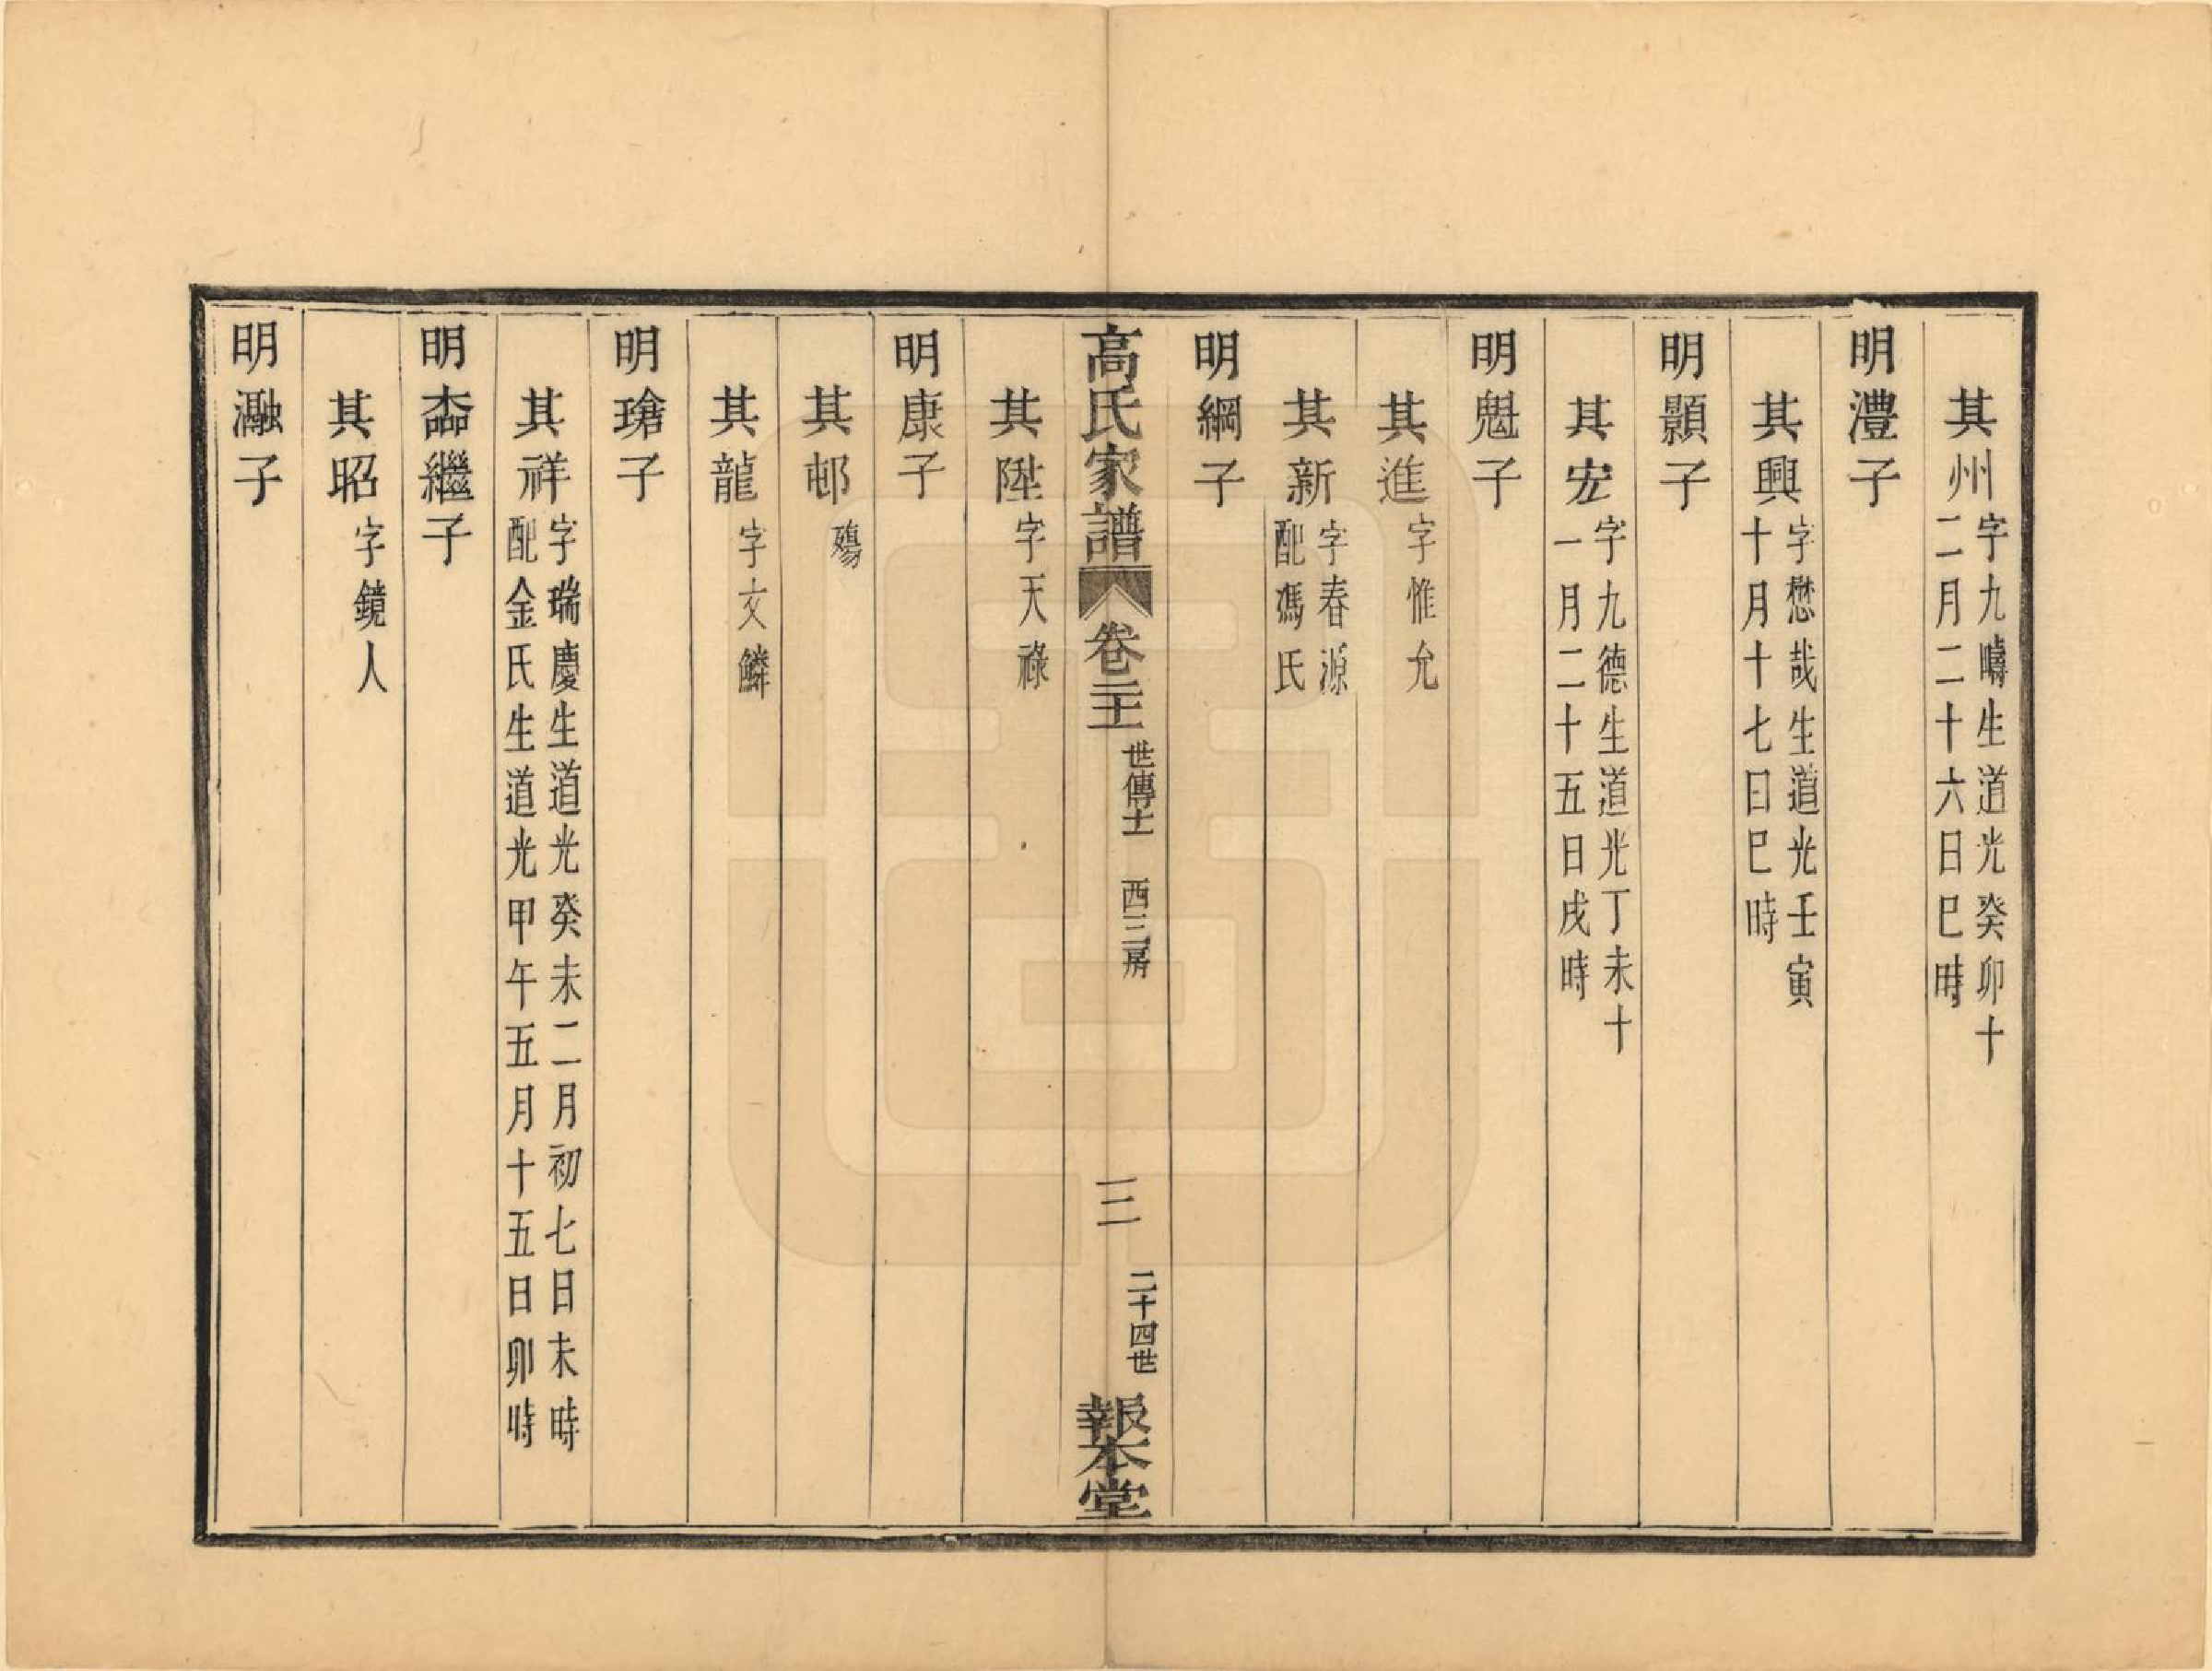 其州字九疇生道光癸卯十
二月二十六日巳時
明澧子
其興字懋哉生道光壬寅
十月十七日巳時
明顥子
其宏字九德生道光丁未十
一月二十五日戌時
明魁子
其進字惟允
其新字春源
配馮氏
明綱子
高氏家譜
卷二十一
世傳十一
西三房
三
二十四世
報本堂
其陞字天祿
明康子
其邨殤
其龍字文鱗
明瑲子
其祥字瑞慶生道光癸未二月初七日未時
配金氏生道光甲午五月十五日卯時
明繼子
其昭字鏡人
明瀜子